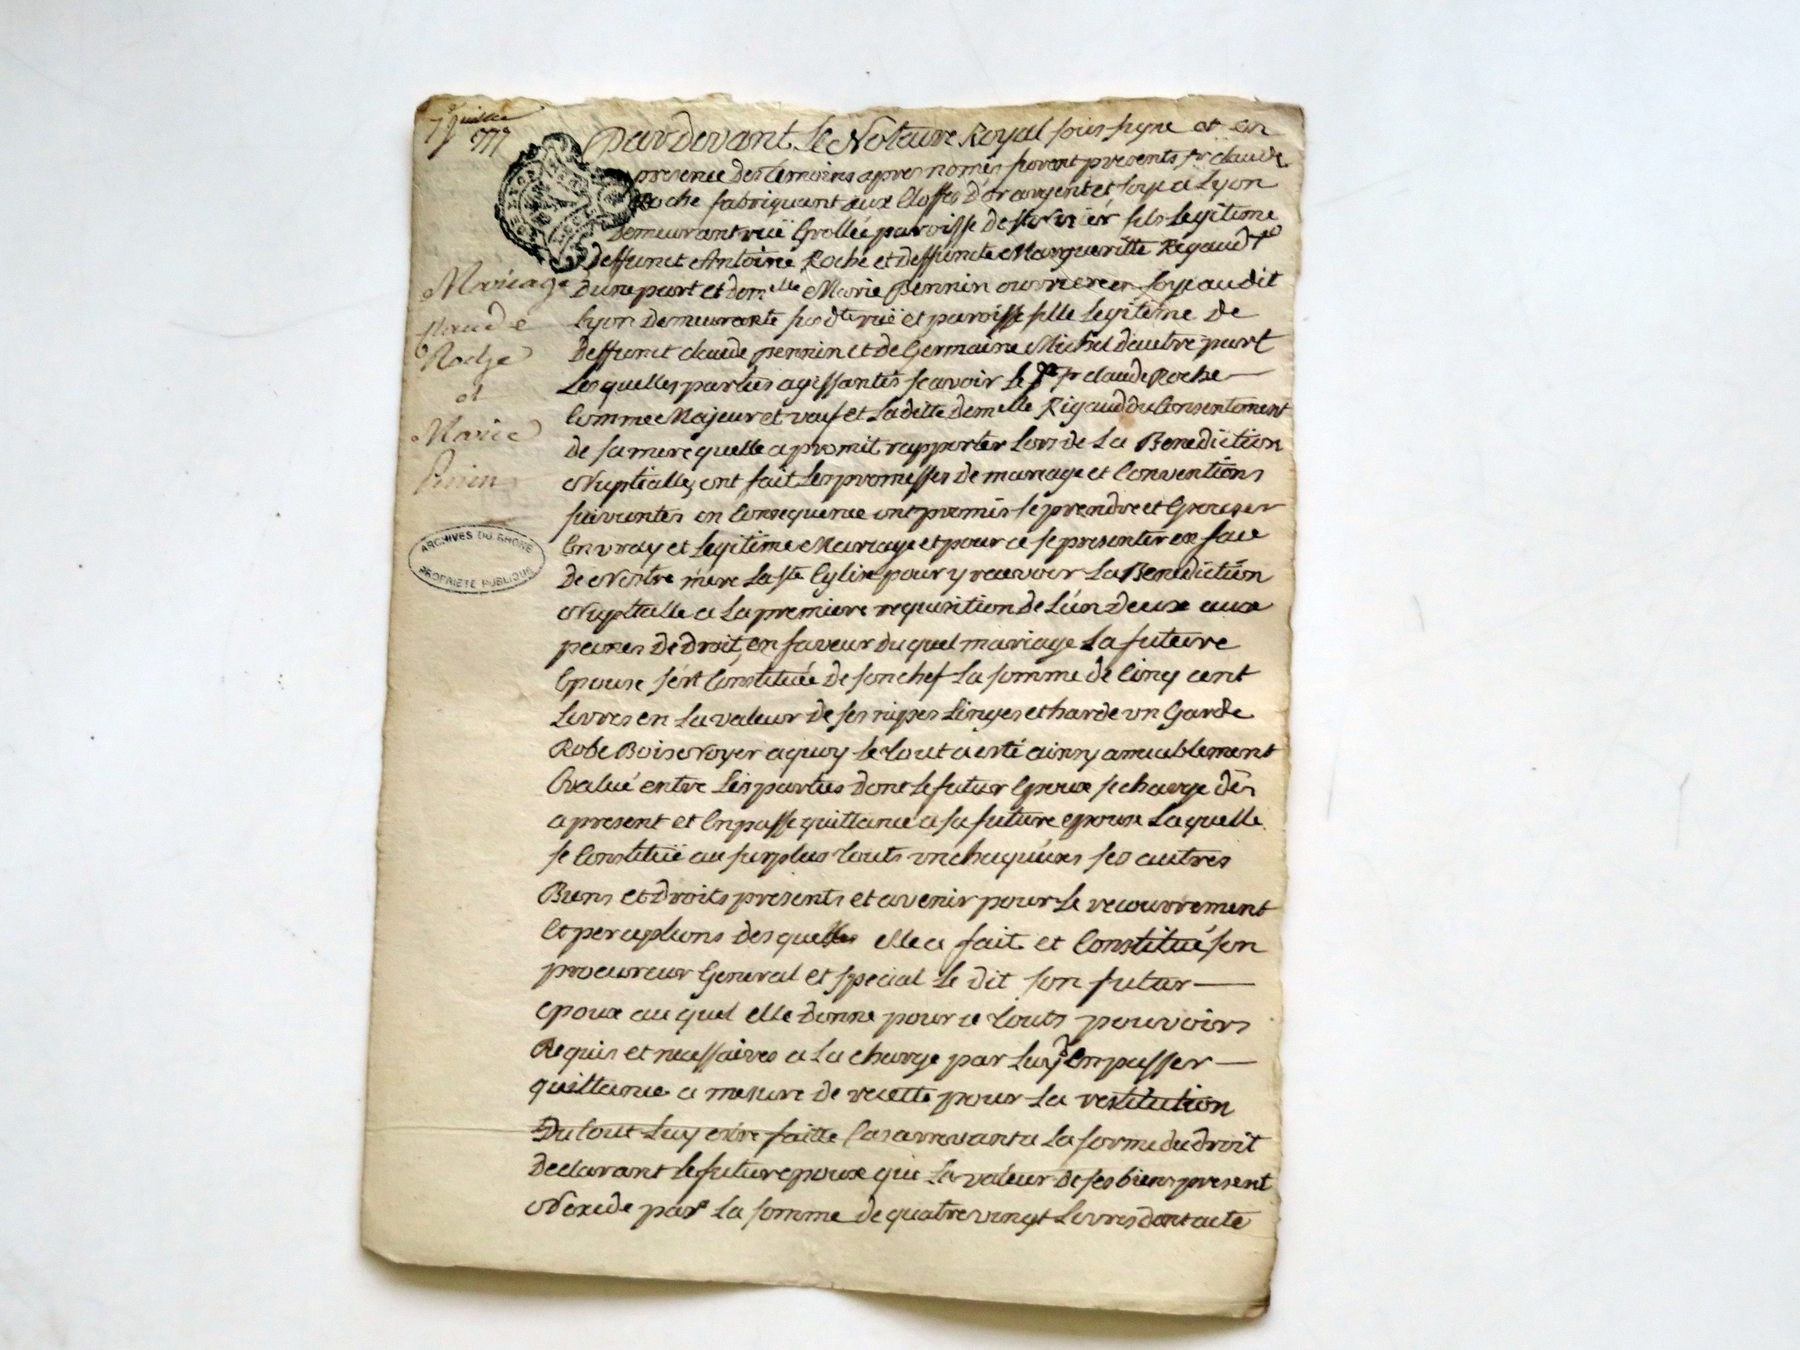 7 Juillet
1777
Mariage
Claude
Roche
et
Marie
Perrin
ARCHIVES DU RHONE
PROPRIETE PUBLIQUE
Par Devant Le Notaire Royal sous signe et en
presence Des temoins apres només furent presents sr claude
Roche fabriquant aux Etoffes D'or argent et soye a Lyon
Demeurant ruë Grollée paroisse de st nizier fils Legitime
Deffunct Antoine Roche et deffuncte Margueritte Rigaud
Dune part et dem.elle Marie perrin ouvriere en soye audit
Lyon Demeurante susdte ruë et paroisse fille Legitime De
Deffunct claude perrin et de Germaine Michel Dautre part
Lesquelles parties agissantes scavoir Le sr claude Roche
Comme Majeur et veuf et Laditte demelle Rigaud du Consentement
De sa mere quelle a promit rapporter Lors de La Benediction
Nuptialle, ont fait Les promesses De mariage et Conventions
suivantes en Consequence ont promis se prendre et Epouser
En vray et Legitime Mariage et pour ce se presenter en face
De Nostre mere La ste Eglise pour y recevoir La Benediction
Nuptialle a La premiere requisition De Lún Deux aux
peines De Droit, en faveur Du quel mariage La future
Epouse s'ert Constituée De son chef La somme de Cinq cent
Livres en La valeur De ses nipes Linges et harde un Garde
Robe Bois noyer a quoy le tout a esté ainsy amiablement
Evalué entre Les parties Dont Le futur Epoux se charge dès
a present et En passe quittance a sa future epouse Laquelle
se Constituë au surplus touts un chaqu'uns ses autres
Biens et Droits presents et avenir pour Le recouvrement
Et perceptions Desquelles elle a fait et Constitué son
procureur General et special Le dit son futur
epoux au quel elle Donne pour ce touts pouvoirs
Requis et necessaires a La charge par Luy d'En passer
quittance a mesure de recette pour La restitution
Du tout Luy estre faitte Cas arrivant a La forme du droit
Declarant Le futur epoux que La valeur De ses biens present
N'exede pas La somme de quatre vingt Livres dont acte